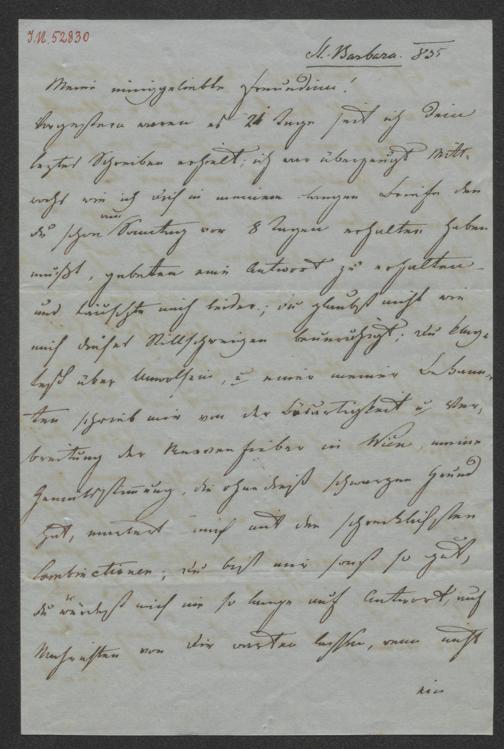 I.N. 52830
St. Barbara. 835
Meine inniggeliebte Freundinn!
Vorgestern waren es 21 Tage seit ich dein
leztes Schreiben erhielt; ich war überzeugt Mitt-
wochs wie ich dich in meinem langen Briefe den
du schon am Sonntag vor 8 Tagen erhalten haben
mußt, gebeten eine Antwort zu erhalten
und täuschte mich leider; du glaubst nicht wie
mich dieses Stillschweigen beunruhigt; du klag-
test über Unwohlsein, u einer meiner Bekann-
ten schrieb mir von der Bösartigkeit u Ver-
breitung der Nervenfieber in Wien, meine
Gemüthsstimmung, die ohnedieß schwarzen Grund
hat, martert mich mit den schrecklichsten
Combinationen; du bist mir sonst so gut,
du würdest mich nie so lange auf Antwort, auf
Nachrichten von dir warten lassen, wenn nicht
ein